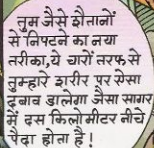 तुम जैसे शैतानों
से निपटने का नया
तरीका,ये चारों तरफ से
तुम्हारे शरीर पर ऐसा
दबाव डालेगा जैसा सागर
में दस किलोमीटर नीचे
पैदा होता है!